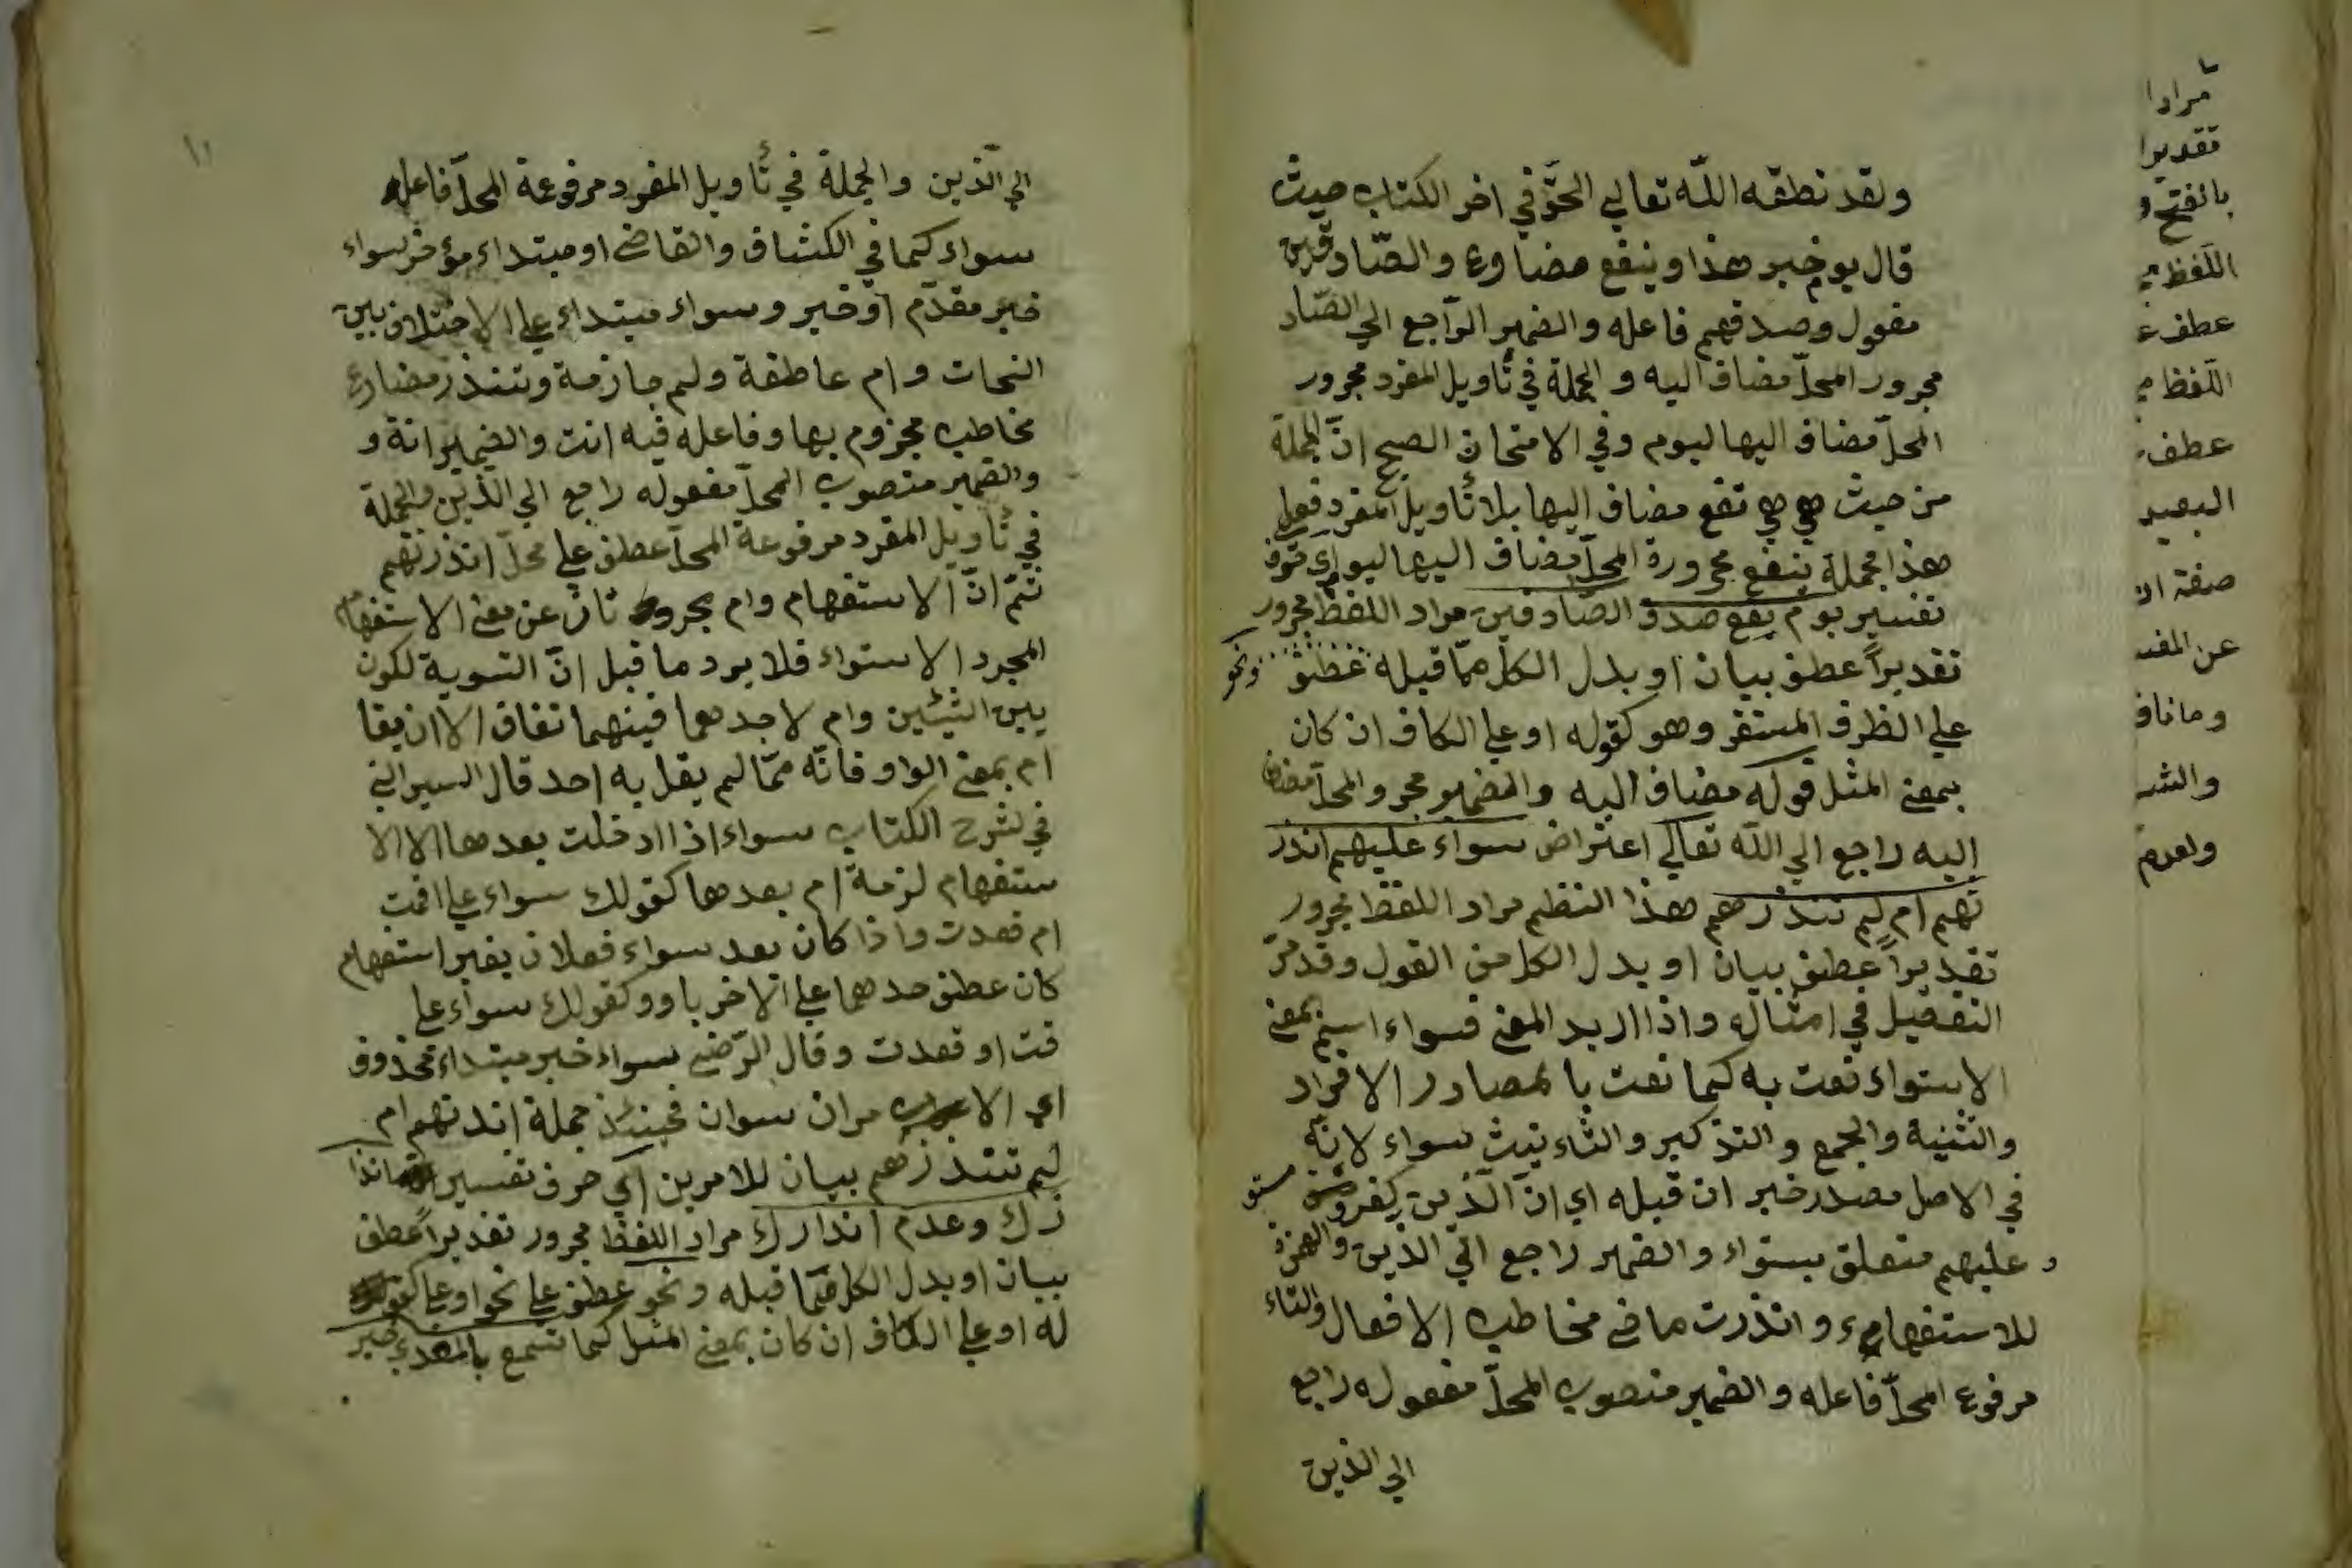 ولقد نطقه اللّه تعالي الحقّ في اخر الكتاب حيث
قال يوم خبر هذا وينفع مضارع والصّادقين
مفعول وصدقهم فاعله والضمير الرّاجع الي الصّاد
مجرور المحلّ مضاف اليه والجملة في تأويل المفرد مجرور
المحلّ مضاف اليها ليوم وفي الامتحان الصحيح انّ الجملة
من حيث هي هي تقع مضاف اليها بلا تأويل المفرد فعلي
هذا جملة ينفع مجرورة المحلّ مضاف اليها ليوم اي حرف
تفسير يوم يقع صدق الصّادقين مراد اللفظ مجرور
تقديراً عطف بيان او بدل الكل ممّا قبله عطف ونحو
علي الظرف المستقر وهو كقوله او علي الكاف ان كان
بمعني المثل قوله مضاف اليه والضمير مجرو المحلّ مضاف
اليه راجع الي اللّه تعالي اعتراض سواء عليهم انذر
تهم ام لم تنذرهم هذا النظم مراد اللفظ مجرور
تقديراً عطف بيان او بدل الكل من القول وقد مرّ
التفصيل في امثاله واذا اريد المعني فسواء اسم بمعني
الاستواء نعت به كما نعت بالمصادر الافراد
والتثنية والجمع والتذكير والتاءنيث سواء لانّه
في الاصل مصدر خبر ان قبله اي انّ الّذين كفروا مستو
وعليهم متعلق بسواء والضمير راجع الي الذين والهمزة
للاستفهام وانذرت ماضي مخاطب الافعال والتاء
مرفوع المحلّ فاعله والضمير منصوب المحلّ مفعوله راجع
الي الذين
مرادا
تقديرا
بالفتح و
اللّفظ
عطف ع
اللّفظ م
عطف
البعيد
صفة ال
عن المف
وما ناف
والش
ولعدم
١١
الي الّذين والجملة في تأويل المفرد مرفوعة المحلّ فاعله
سواء كما في الكشاف والقاضي او مبتداء مؤخر سواء
خبر مقدّم او خبر وسواء مبتداء علي الاختلاف بين
النحات وام عاطفة ولم جازمة وتنذر مضارع
مخاطب مجزوم بها وفاعله فيه انت والضمير انة و
والضمير منصوب المحلّ مفعوله راجع الي الّذين والجملة
في تأويل المفرد مرفوعة المحلّ عطف علي محلّ انذرتهم
ثمّ انّ الاستفهام وام مجرو تان عن معني الاستفهام
المجرد الاستواء فلا يرد ما قبل انّ التسوية لكون
بين الشيئين وام لاحدهما فبينهما تفاف الا ان يقا
ام بمعني الواو فانّه ممّا لم يقل به احد قال السيرافي
في شرح الكتاب سواء اذا ادخلت بعدها الا الا
ستفهام لزمة ام بعدها كقولك سواء علي اقمت
ام قعدت واذا كان بعد سواء فعلان بغير استفهام
كان عطف حدهما علي الاخر باو وكقولك سواء علي
قت او قعدت وقال الرّضي سواء خبر مبتداء محذوف
اي الا مران سوان فحينئذ جملة انذتهم ام
لم تنتذرهم بيان للامرين اي حرف تفسير انذا
رك وعدم انذارك مراد اللفظ مجرور تقديراً عطف
بيان او بدل الكل ممّا قبله ونحو عطف علي نحو او علي كقو
له او علي الكاف ان كان بمعني المثل كما تسمع بالمعدي خير